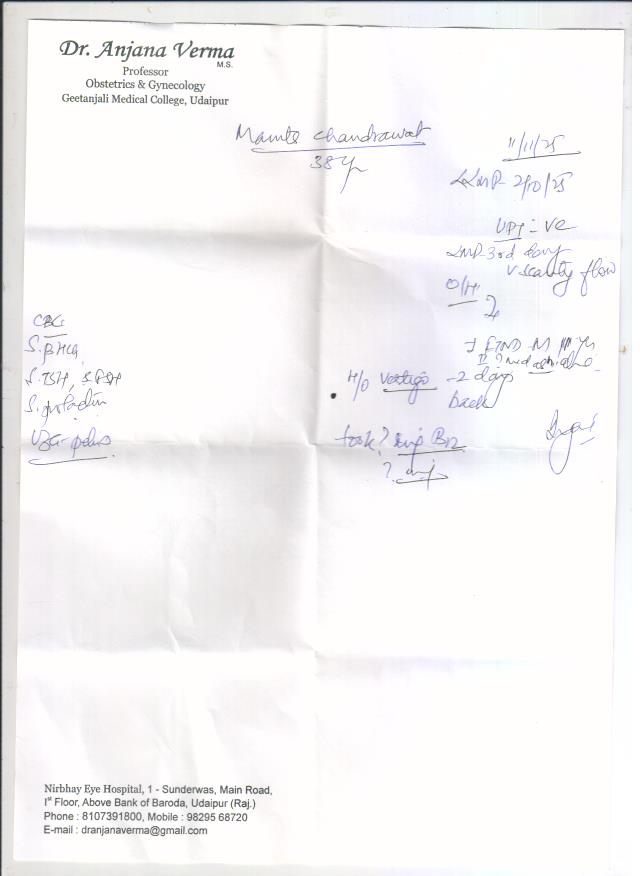 Dr. Anjana Verma
M.S.
Professor
Obstetrics & Gynecology
Geetanjali Medical College, Udaipur
Chandrawat
38y
11/11/25
LMP- 2/10/25
UPT - ve
LMP- 3rd day
scanty flow
O/H
CBC
S. βHCG
S. TSH, S FSH
S.
USG - pelvis
H/O Vertigo - 2 days
back
took? inj B12
? inj
Nirbhay Eye Hospital, 1 - Sunderwas, Main Road,
Ist Floor, Above Bank of Baroda, Udaipur (Raj.)
Phone : 8107391800, Mobile : 98295 68720
E-mail : dranjanaverma@gmail.com